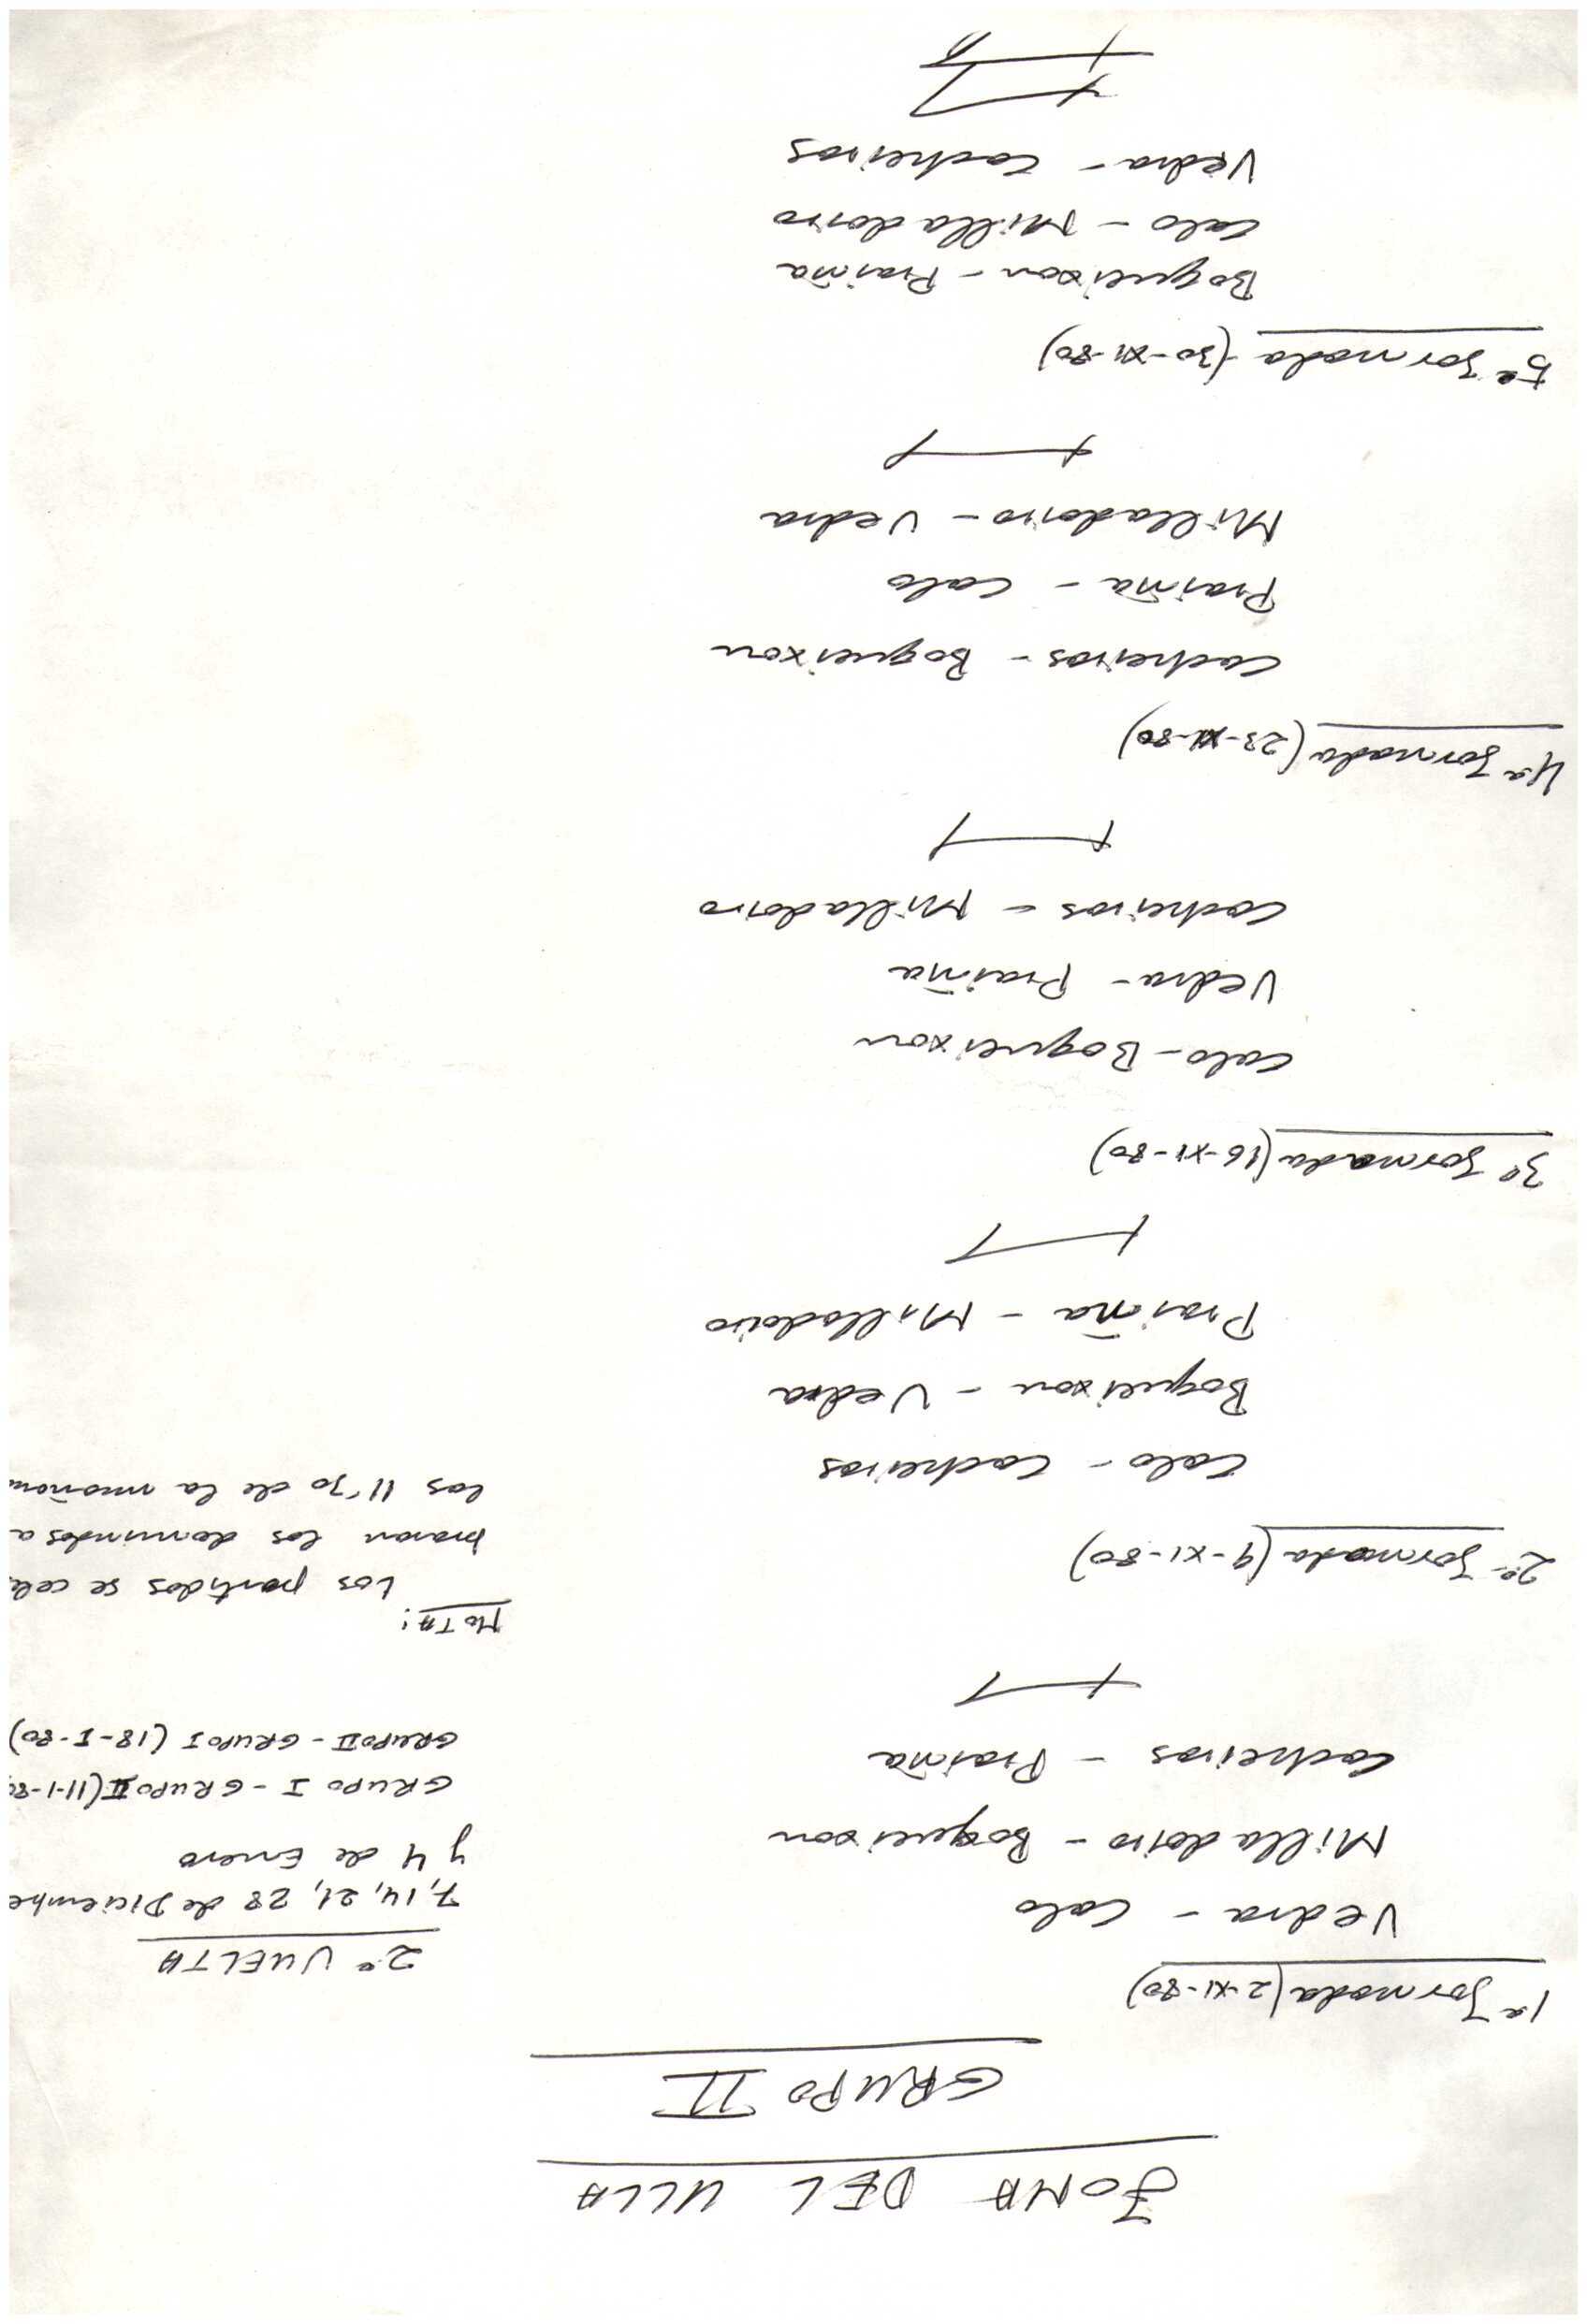 ZONA DEL ULLA
GRUPO II
1ª Jornada (2-XI-80)
Vedra - Calo
Milladoiro - Boqueixon
Cacheiros - Praiña
2ª Jornada (9-XI-80)
Calo - Cacheiros
Boqueixon - Vedra
Praiña - Milladoiro
3ª Jornada (16-XI-80)
Calo - Boqueixon
Vedra - Praiña
Cacheiros - Milladoiro
4ª Jornada (23-XI-80)
Cacheiros - Boqueixon
Praiña - Calo
Milladoiro - Vedra
5ª Jornada (30-XI-80)
Boqueixon - Praiña
Calo - Milladoiro
Vedra - Cacheiros
2ª VUELTA
7, 14, 21, 28 de Diciembre
y 4 de Enero
GRUPO I - GRUPO II (11-1-80
GRUPO II - GRUPO I (18-I-80)
NOTA:
Los partidos se cele
braran los domindos a
las 11'30 de la mañana